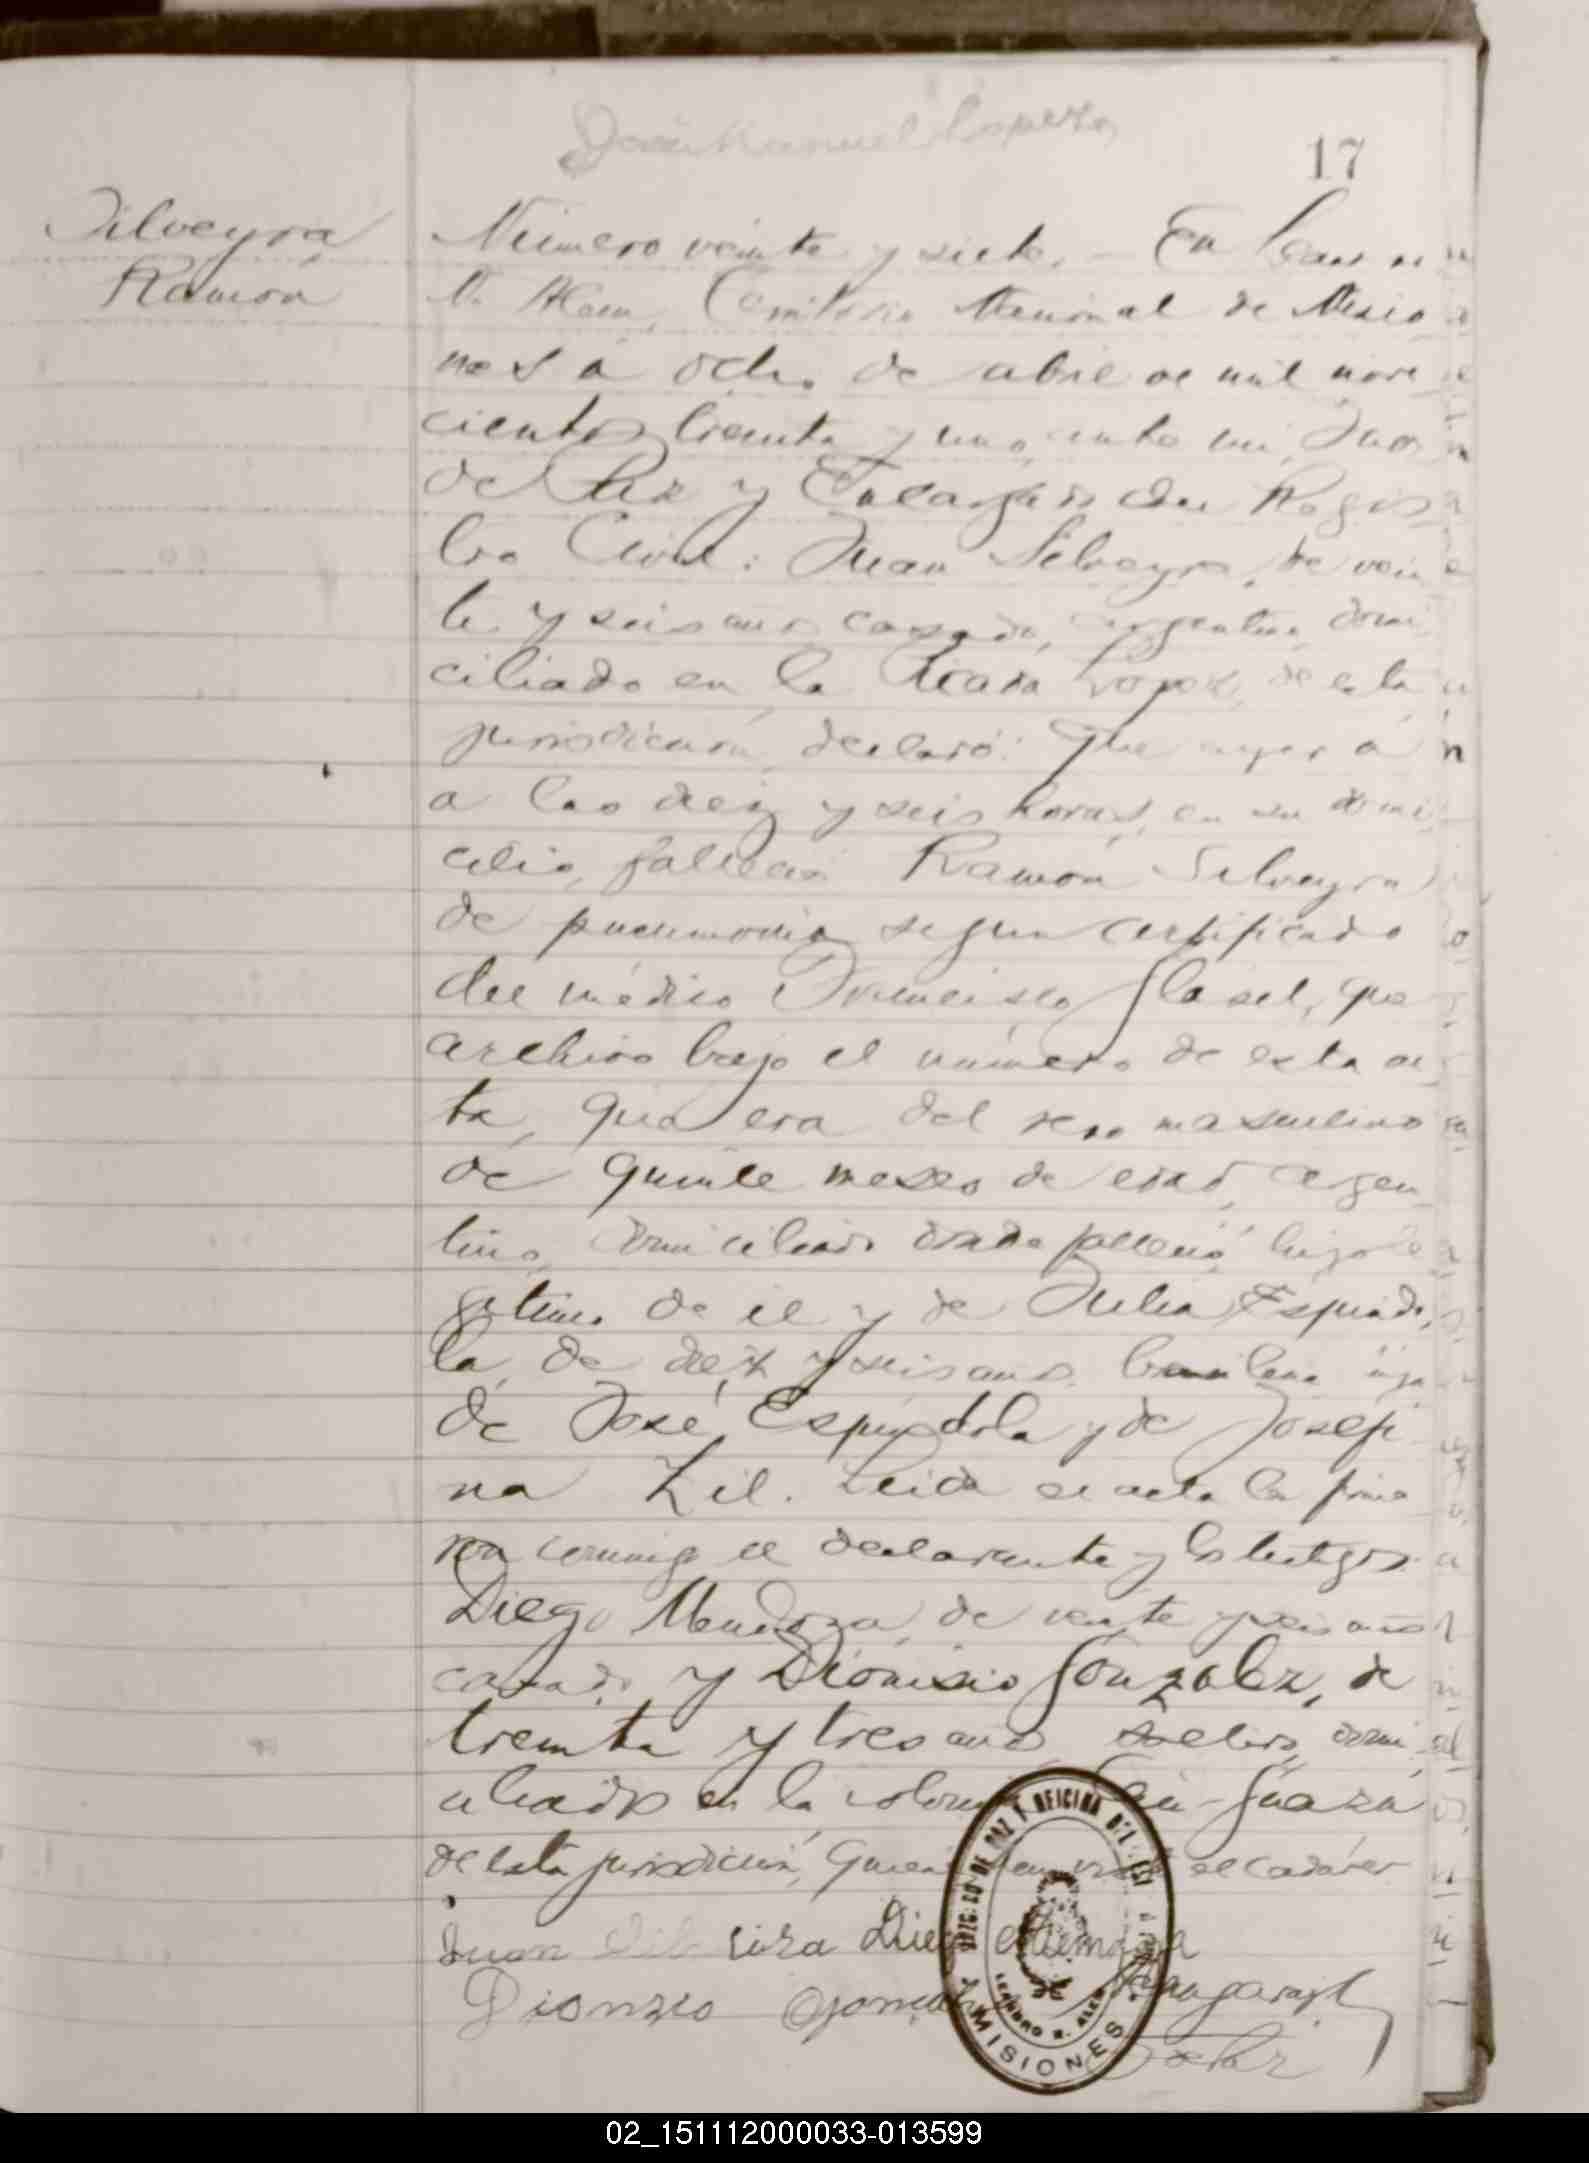 José Manuel Lopez
17
Silveyra
Ramón
Número veinte y siete. – En Lean
N. Alem, Territorio Nacional de Misio
nes á ocho de abril de mil nove
cientos treinta y uno, ante mi, Juez
de Paz y Encargado del Regis
tro Civil: Juan Silveyra, de vein
te y seis años, casado, argentino, domi
ciliado en la Picada Lopez, de esta
jurisdicción, declaró: Que ayer á
a las diez y seis horas, en su domi
cilio, falleció Ramón Silveyra
de pneumonia segun certificado
del médico Francisco Glasel, que
archivo bajo el número de esta ac
ta, que era del sexo masculino
de quince meses de edad, argen
tino, domiciliado donde falleció, hijo le
gitimo de él y de Julia Espindo
la, de diez y seis años, brasilera hija
de José Espíndola y de Josefi
na Zil. Leida el acta la firma
ron conmigo el declarante y los testigos
Diego Mendoza, de veinte y seis años
casado y Dionisio Gonzalez, de
treinta y tres años soltero, domi
ciliados en la colonia
de esta jurisdicción, quienes han visto el cadáver
Juan Silveira Diego Mendoza
Dionizio
JUZGADO DE PAZ Y OFICINA DEL REGISTRO CIVIL
LEANDRO N. ALEM
MISIONES
02_151112000033-013599